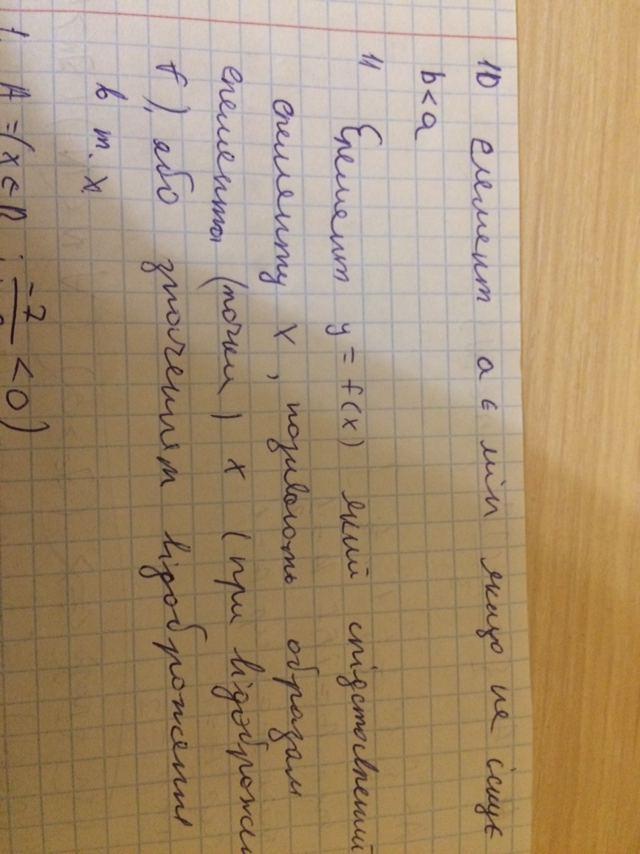 10 елемент a є мін якщо не існує
b < a
11 Елемент y = f(x) який співставлений
елементу x, називають образам
елемента (точки) x (при відображен
f), або значенням відображення
в т. x.
1. A = (x ∈ R : -7 < 0)